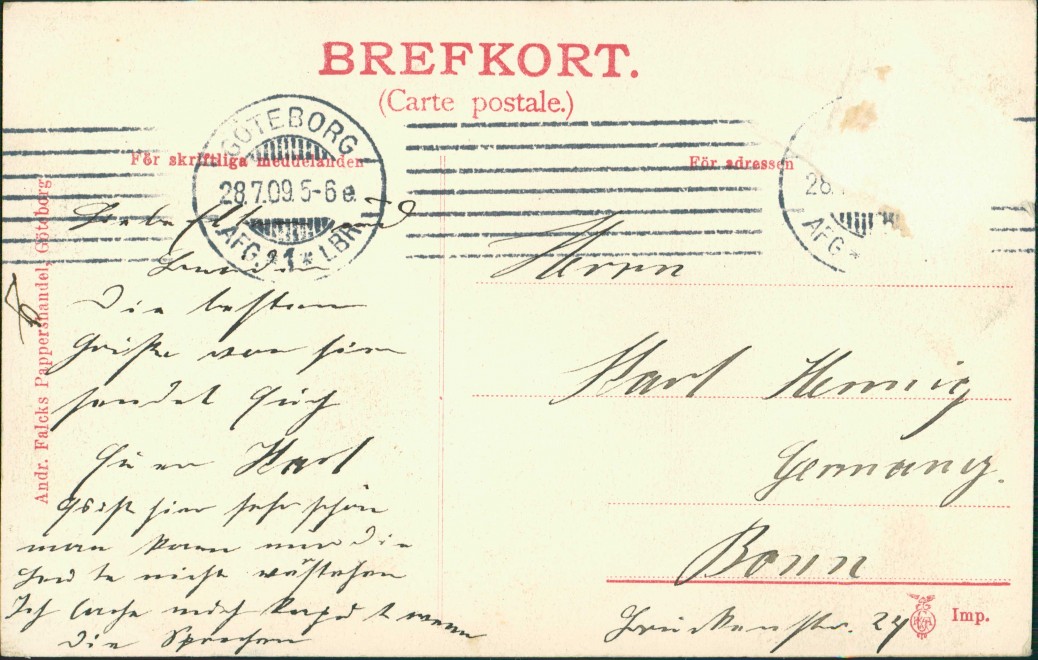 BREFKORT.
(Carte postale.)
För skriftliga meddelanden
För adressen
GÖTEBORG
28.7.09.5-6 e.
AFG. 21 * 1.BR.
28.
AFG *
Andr. Falcks Pappershandel, Göteborg.
Liebe und
Die besten
Grüße von hier
sendet Euch
Euer Karl
Es ist hier sehr schön
man kann nur die
Leute nicht verstehen
Ich lache mich kaput wenn
die sprechen
Herrn
Karl Hennig
Germany.
Bonn
Brückenstr. 24
Imp.